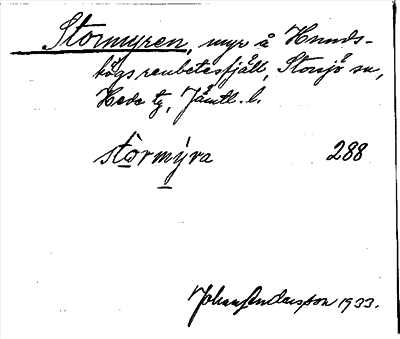 Stormyren, myr å Hunds-
högs renbetesfjäll, Storsjö sn,
Hede tg, Jämtl. l.
stòrmýra 288
Johan Andersson 1933.